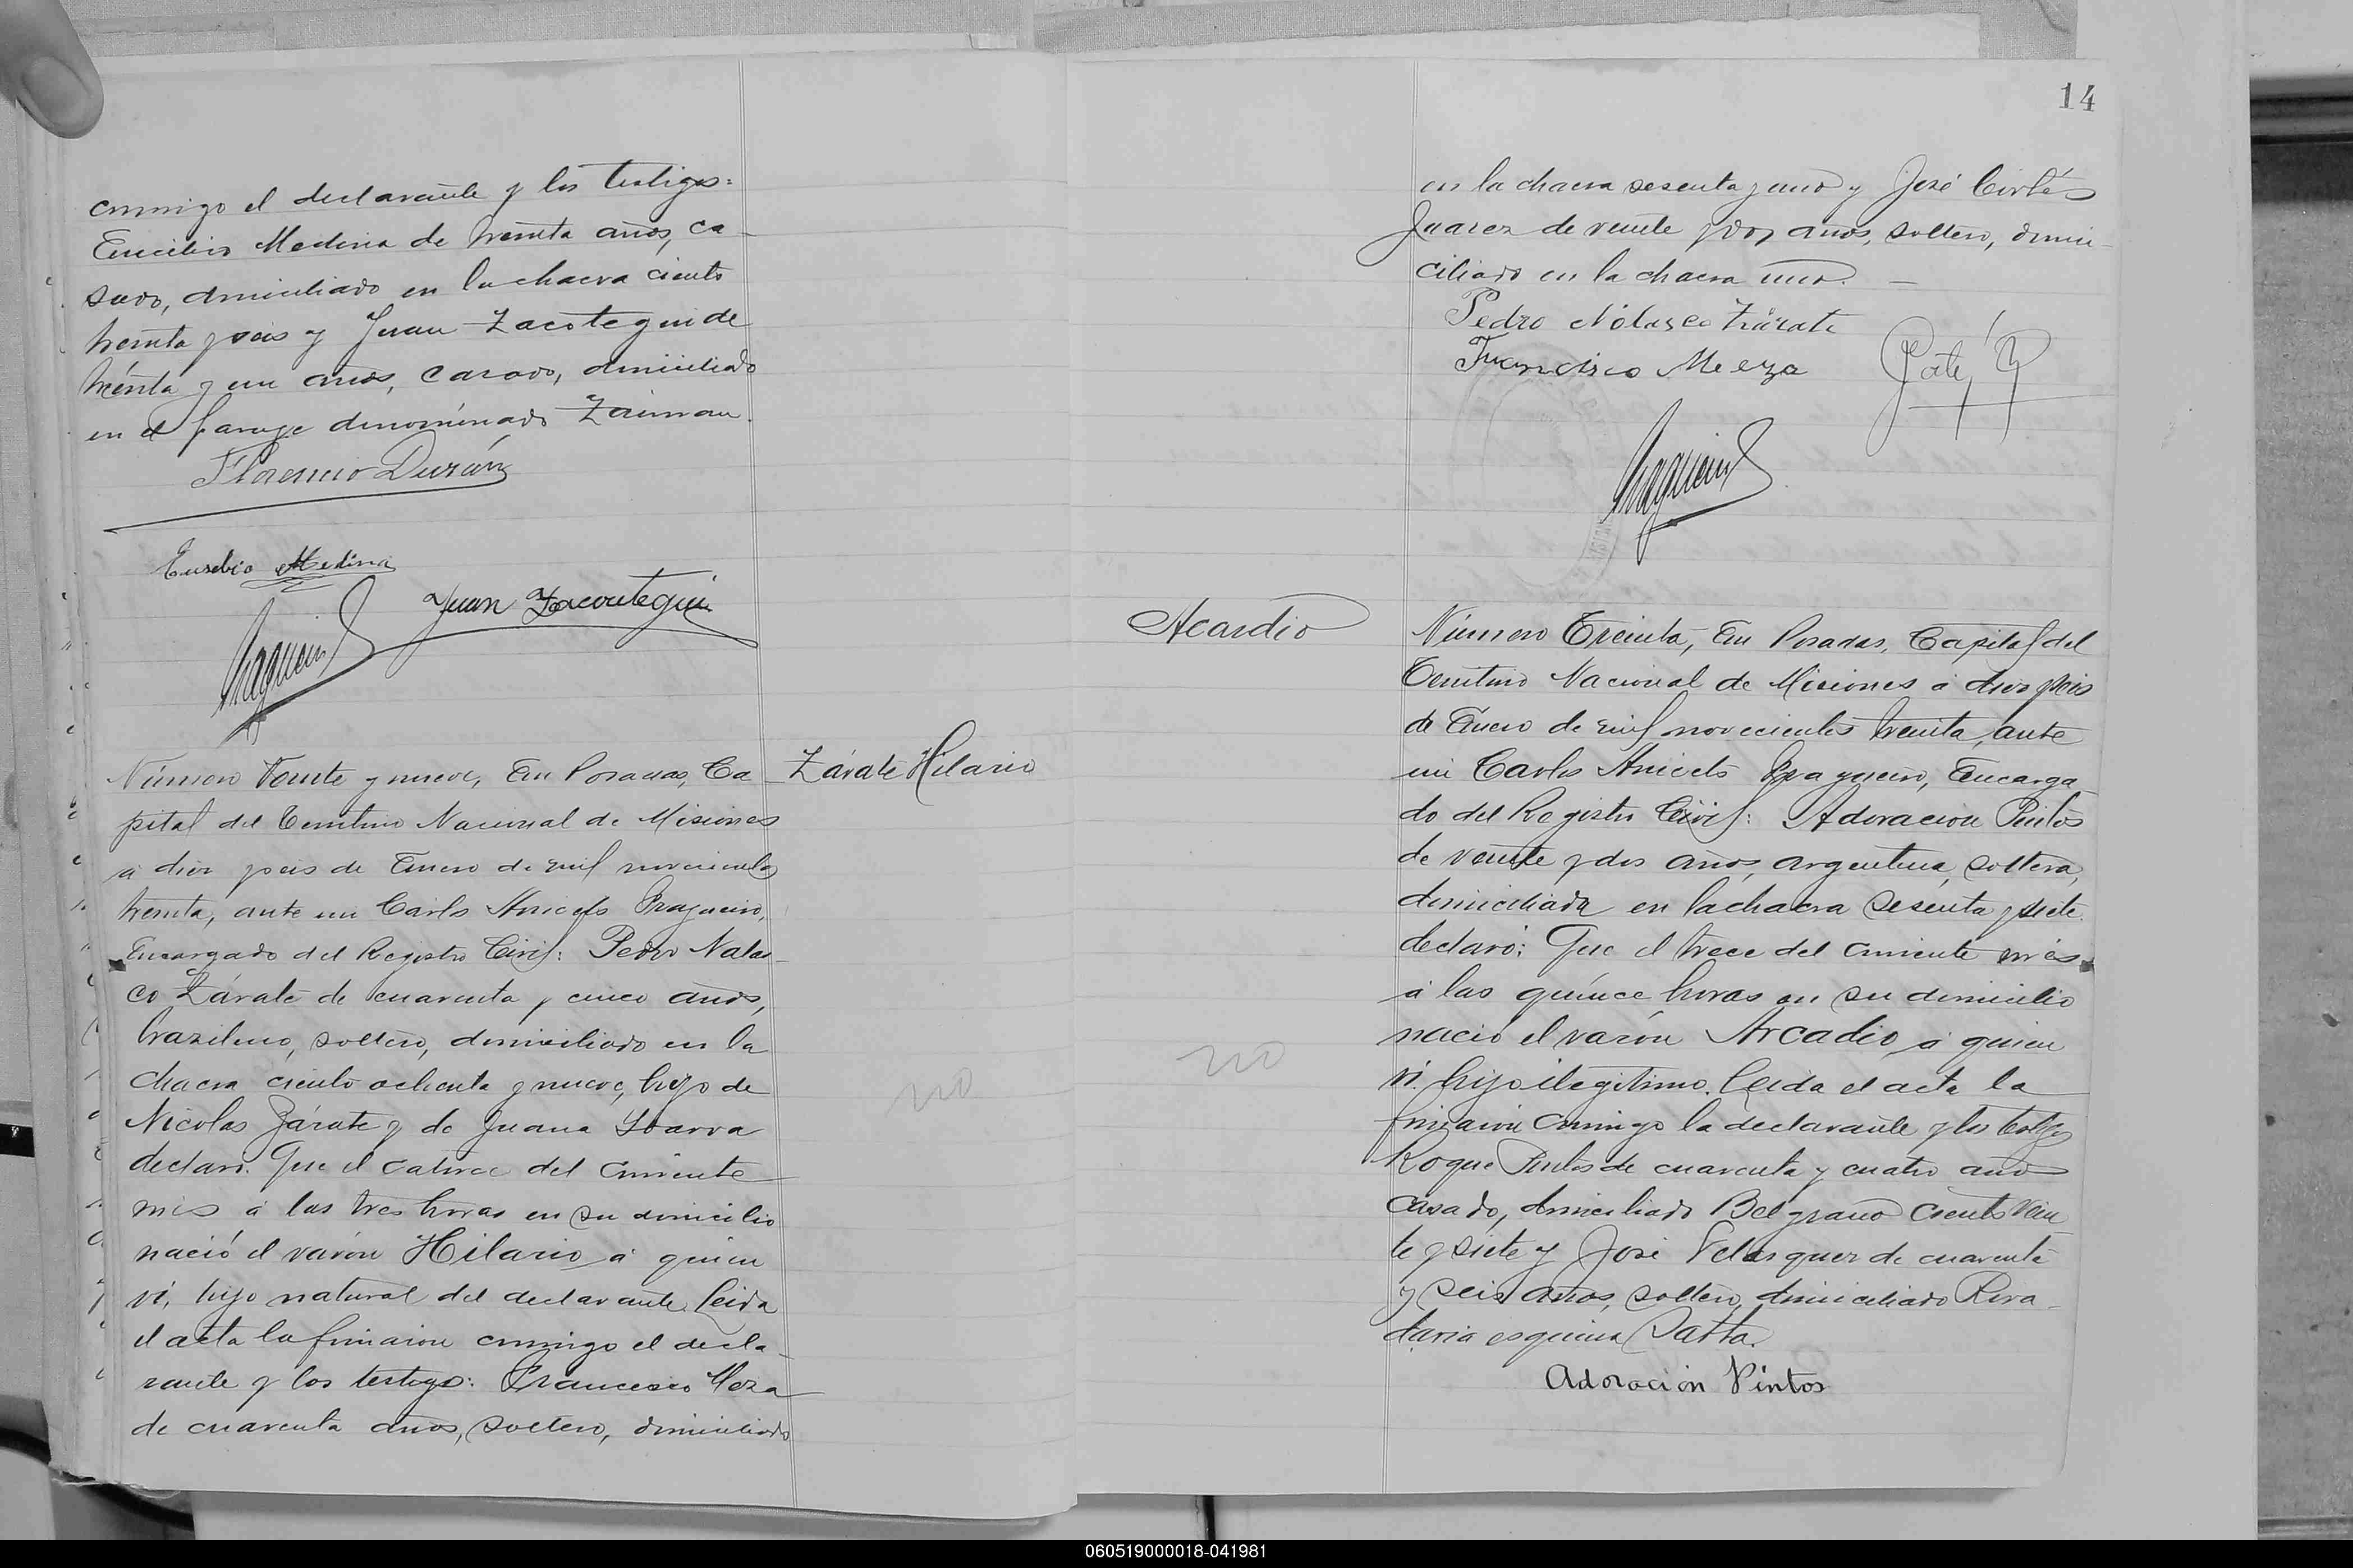 conmigo el declarante y los testigos:
Eusebio Medina de treinta años, ca-
sado, domiciliado en la chacra ciento
treinta y seis y Juan Zacotegui de
treinta y un años, casado, domiciliado
en el paraje denominado Zaiman.
Florencio Durán
Eusebio Medina
Juan Zacoutegui
Número Veinte y nueve, En Posadas, Ca-
Zárate Hilario
pital del Territorio Nacional de Misiones
á diez y seis de Enero de mil novecientos
treinta, ante mi Carlos Aniceto Fragueiro,
Encargado del Registro Civil: Pedro Nolas-
co Zárate de cuarenta y cinco años,
brazilero, soltero, domiciliado en la
chacra ciento ochenta y nueve, hijo de
Nicolas Zárate y de Juana Ibarra
declaró: Que el catorce del corriente
mes á las tres horas en su domicilio
nació el varón Hilario á quien
ví, hijo natural del declarante. Leída
el acta la firmaron conmigo el decla-
rante y los testigos: Francisco Meza
de cuarenta años, soltero, domiciliado
no
14
en la chacra sesenta y uno y José Cortés
Juarez de veinte y dos años, soltero, domi-
ciliado en la chacra uno.
Pedro Nolasco Zárate
Francisco Meza
Acardio
Número Treinta, En Posadas, Capital del
Territorio Nacional de Misiones á diez y seis
de Enero de mil novecientos treinta, ante
mi Carlos Aniceto Fragueiro, Encarga-
do del Registro Civil: Adoracion Pintos
de veinte y dos años, argentina, soltera,
domiciliada en la chacra sesenta y siete
declaró: Que el trece del corriente mes
á las quince horas en su domicilio
nació el varón Arcadio á quien
ví hijo ilegitimo. Leída el acta la
firmaron conmigo la declarante y los testigos
Roque Pintos de cuarenta y cuatro años
casado, domiciliado Belgrano ciento vein
te y siete y José Velasquez de cuarenta
y seis años, soltero, domiciliado Riva-
davia esquina Salta.
Adoración Pintos
no
060519000018-041981